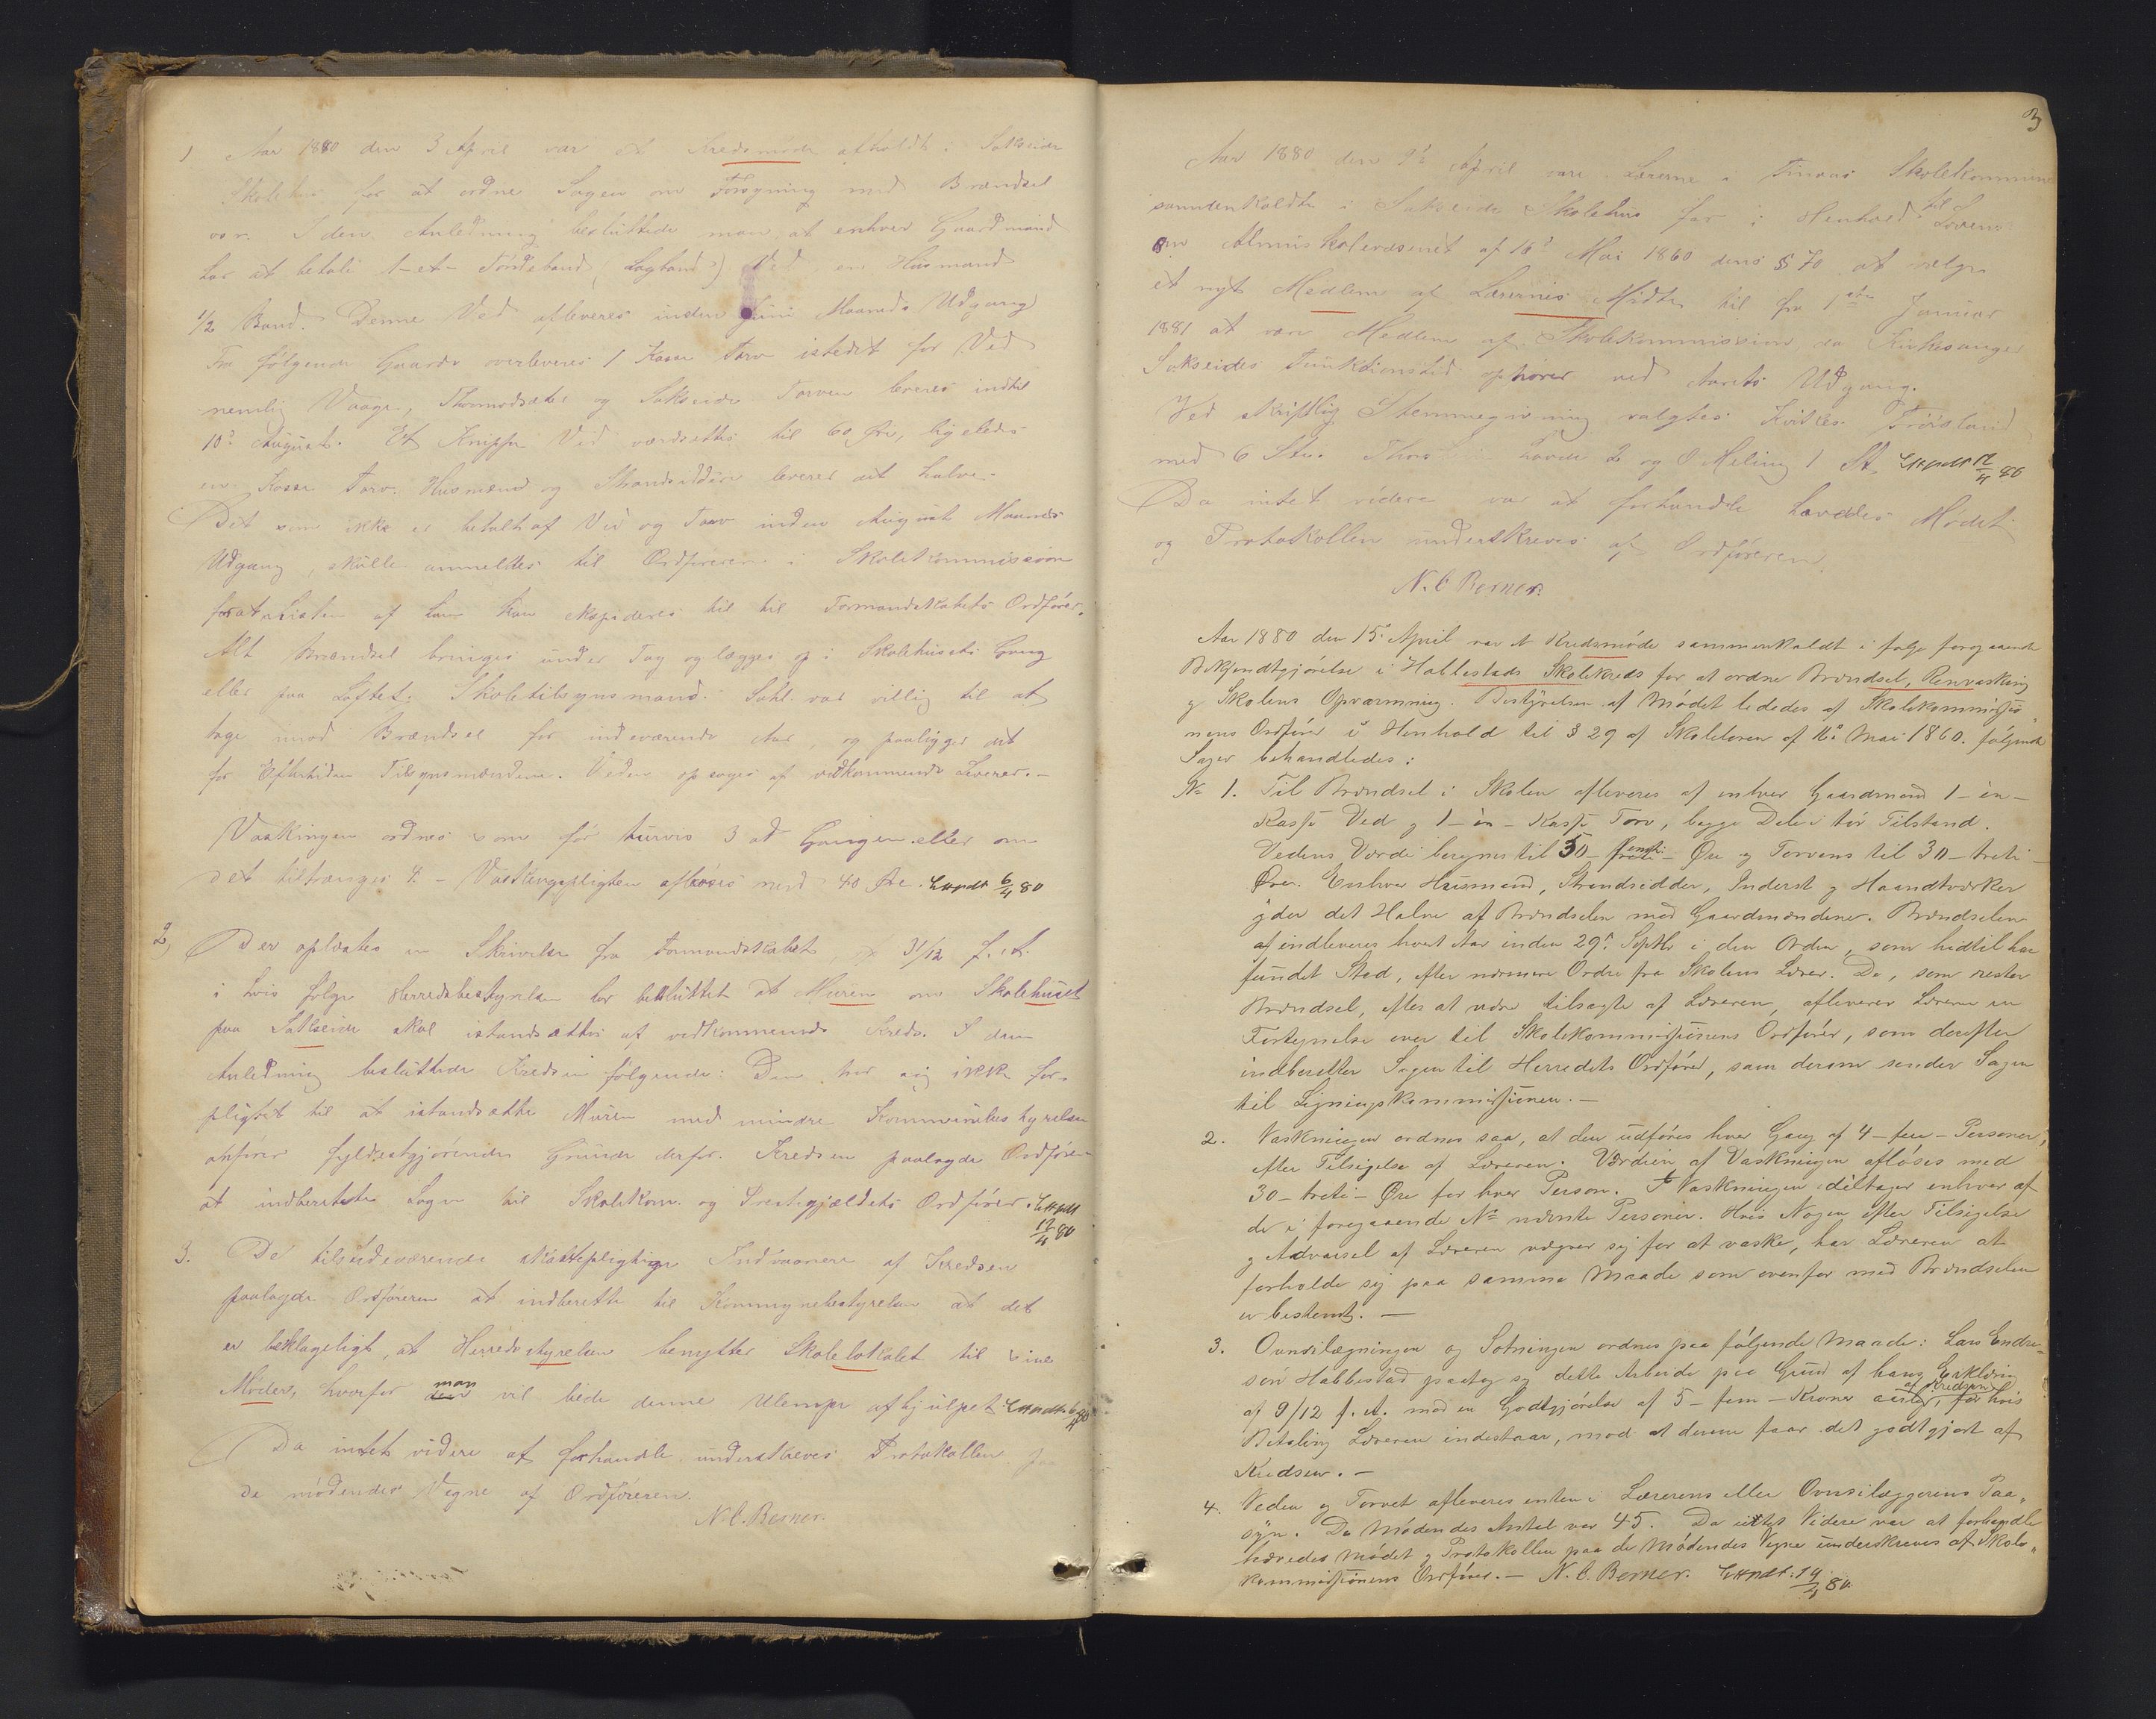 1 Aar 1880 den 3 April var et Kredsmøde afholdt i Søkseide
Skolehus for at ordne Sagen om Forsyning med Brændsel
I den Anledning besluttede man, at enhver Gaardmand
har at betale 1-et- Baand Ved, en Husmand
1/2 Baand. Denne Ved afleveres inden Juni Maaneds Udgang
Fra følgende Gaarde overleveres 1 Kasse Torv istedet for Ved
nemlig Vaage, og Søkseide. Torven leveres indtil
10de August. Et Knippe Ved værdsættes til 60 Øre, ligeledes
en Kasse Torv. Husmænd og Strandsiddere leverer det halve.
Det som ikke er betalt af Ved og Torv inden August Maaneds
Udgang, skulle anmeldes til Ordføreren i Skolekommissionen
foratListen af ham kan ekspideres til til Formandskabets Ordfører.
Alt Brændsel bringes under Tag og lægges op i Skolehusets Gang
eller paa Loftet. Skoletilsynsmand var villig til at
tage imod Brændsel for indeværende Aar, og paaligger det
for Eftertiden Tilsynsmændene. Veden opsages af vedkommende Leverer.-
Vaskingen ordnes som før turvis 3 ad Gangen eller om
det tiltrænges 4. - Vaskingspligten afløses med 40 Øre. 6/4 80
2, Der oplæstes en Skrivelse fra Formandskabet 31/12 f. A.
i hvis følge Herredsbestyrelsen har besluttet at Muren om Skolehuset
paa Søkseide skal istandsættes af vedkommende Kreds. I den
Anledning besluttede Kredsen følgende: Den tror sig ikke for-
pligtet til at istandsætte Muren med mindre Kommunebestyrelsen
anfører fyldestgjørende Grunde derfor. Kredsen paalagde Ordføre-
at indberette Sagen til Skolekom. og Præstegjældets Ordfører.
12/4 80
3. De tilstedeværende skattepligtige Indvaanere af Kredsen
paalagde Ordføreren at indberette til Kommunebestyrelsen at det
er beklageligt, at Herredsstyrelsen benytter Skolelokalet til sine
Møder, hvorfor man vil bede denne Ulempe afhjulpet 6/4 80
Da intet videre at forhandle underskreves Protokollen paa
de mødendes Vegne af Ordføreren.
N. C. Berner.
3
Aar 1880 den April vare Lærerne i Skolekommune
sammenkaldte i Søkseide Skolehus for i Henhold til Loven
om Almueskolevæsenet af 16de Mai 1860 dens § 70 at vælge
et nyt Medlem af Lærernes Midte til fra 1ste Januar
1881 at være Medlem af Skolekommissionen, da Kirkesanger
Søkseides Funktionstid ophører ved Aarets Udgang.
Ved skriftlig Stemmegivning valgtes
med 6 St. havde 2 og O. Meling 1 St. 12/4 80
Da intet videre var at forhandle hævedes Mødet
og Protokollen underskreves af Ordføreren.
N. C Berner.
Aar 1880 den 15de April var et Kredsmøde sammenkaldt i følge foregaaende
Bekjendtgjørelse i Habbestads Skolekreds for at ordne Brændsel, Renvasking
og Skolens Opvarmning. Bestyrelsen af Mødet lededes af Skolekommissio-
nens Ordfører i Henhold til § 29 af Skoleloven af 16de Mai 1860. følgende
Sager behandledes:
No 1. Til Brændsel i Skolen afleveres af enhver Gaardmand 1 - en -
Kasse Ved og 1 - en - Kasse Torv, begge Dele i tør Tilstand.
Vedens Værdi beregnes til 50 - femti - Øre og Torvens til 30 - treti -
Øre. Enhver Husmand, Strandsidder, Inderst og Haandtværker
yder det Halve af Brændselen mod Gaardmændene. Brændselen
afindleveres hvert Aar inden 29de Septbr i den Orden, som hidtil har
fundet Sted, efter nærmere Ordre fra Skolens Lærer. De, som rester
Brændsel, efter at være tilsagte af Læreren, afleverer Læreren en
Fortegnelse over til Skolekommissionens Ordfører, som derefter
indberetter Sagen til Herredets Ordfører, som derom sender Sagen
til Ligningskommissionen. -
2. Vaskningen ordnes saa, at den udføres hver Gang af 4 - fire - Personer,
efter Tilsigelse af Læreren. Værdien af Vaskningen afløses med
30 - treti - Øre for hver Person. I Vaskningen deltager enhver af
de i foregaaende No nævnte Personer. Hvis Nogen efter Tilsigelse
og Advarsel af Læreren vægrer sig for at vaske, har Læreren at
forholde sig paa samme Maade som ovenfor med Brændselen
er bestemt. -
3. Ovnsilægningen og Sotningen ordnes paa følgende Maade: Lars Endre-
sen Habbestad paatog sig dette Arbeide paa Grund af hans Erklæring
af 9/12 f. A. mod en Godtgjørelse af 5 - fem - Kroner aarlig af Kredsen, for hvis
Betaling Læreren indestaar, mod at denne faar det godtgjort af
Kredsen. -
4. Veden og Torvet afleveres enten i Lærerens eller Ovnsilæggerens Paa-
syn. De Mødendes Antal var 45. Da intet Videre var at forhandle
hævedes Mødet og Protokollen paa de Mødendes Vegne underskreves af Skole-
kommissionens Ordfører. - N. C. Berner. 19/4 80.